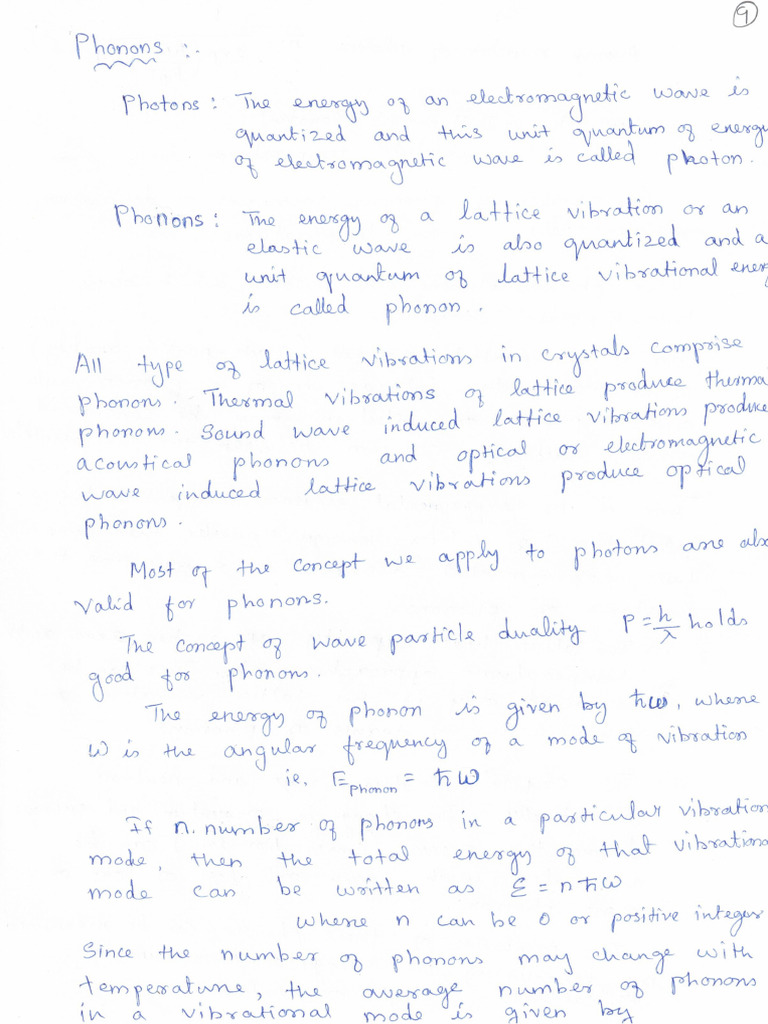 9
Phonons :-
Photons : The energy of an electromagnetic wave is
quantized and this unit quantum of energy
of electromagnetic wave is called photon.
Phonons : The energy of a lattice vibration or an
elastic wave is also quantized and a
unit quantum of lattice vibrational energ
is called phonon.
All type of lattice vibrations in crystals comprise
phonons. Thermal vibrations of lattice produce therma
phonons. Sound wave induced lattice vibrations produce
acoustical phonons and optical or electromagnetic
wave induced lattice vibrations produce optical
phonons.
Most of the concept we apply to photons are als
valid for phonons.
The concept of wave particle duality P = h/λ holds
good for phonons.
The energy of phonon is given by ħω, where
ω is the angular frequency of a mode of vibration
ie. E phonon = ħω
If n. number of phonons in a particular vibration
mode, then the total energy of that vibrationa
mode can be written as ε = nħω
where n can be 0 or positive integer
Since the number of phonons may change with
temperature, the average number of phonons
in a vibrational mode is given by